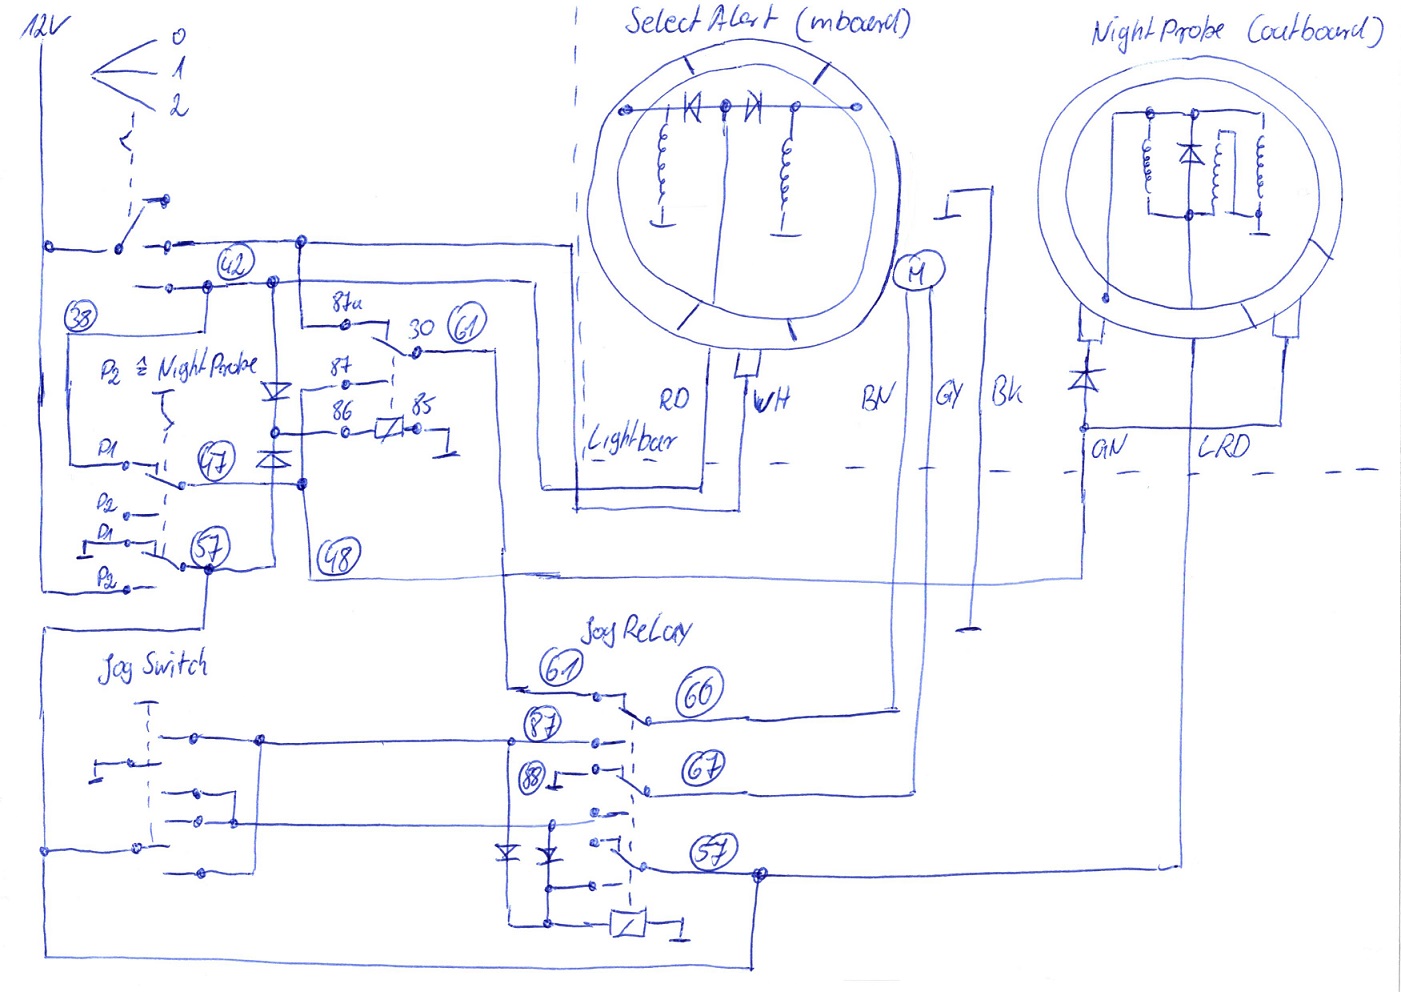 12V
0
1
2
SelectAlert (inboard)
NightProbe (outboard)
42
38
87a
30
61
M
P2 ≙ NightProbe
87
86
85
RD
WH
BN
GY
BK
Lightbar
GN
LRD
P1
47
P2
P1
57
48
P2
Jog Relay
Jog Switch
61
66
87
88
67
57